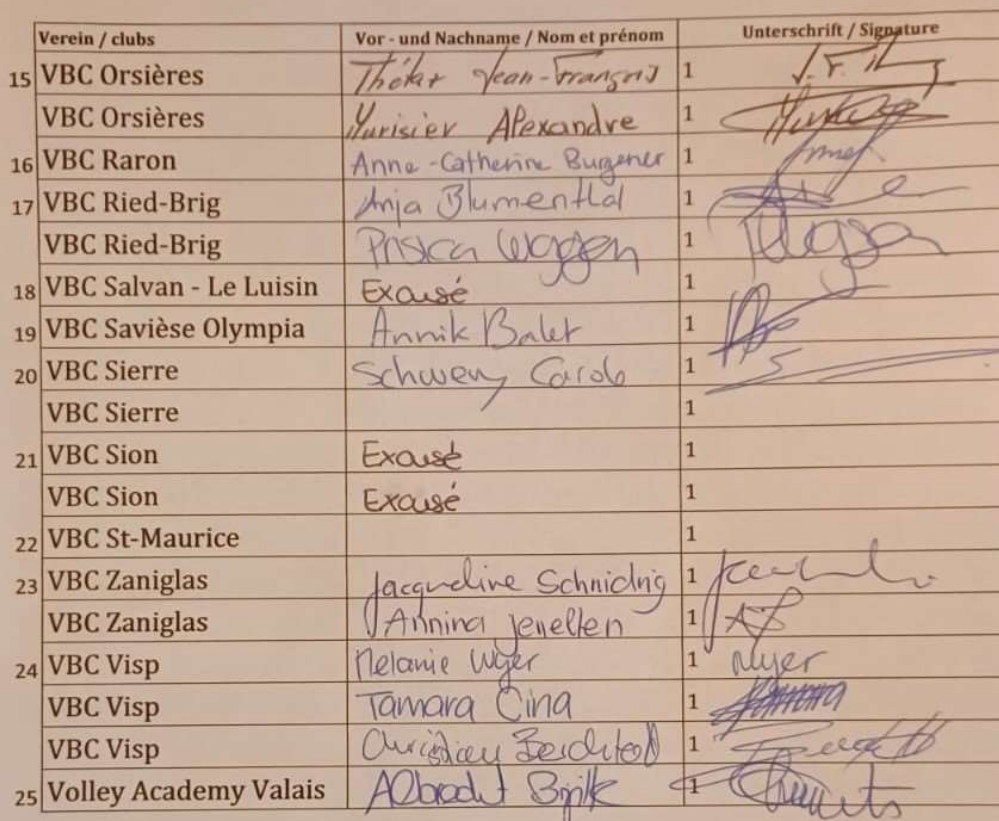 Verein / clubs Vor - und Nachname / Nom et prénom Unterschrift / Signature
15 VBC Orsières Jean-François 1
VBC Orsières Murisier Alexandre 1
16 VBC Raron Anne-Catherine Burgener 1
17 VBC Ried-Brig Anja Blumenthal 1
VBC Ried-Brig Prisca Wyssen 1
18 VBC Salvan - Le Luisin Excusé 1
19 VBC Savièse Olympia Annik Balet 1
20 VBC Sierre Schwery Carole 1
VBC Sierre 1
21 VBC Sion Excusé 1
VBC Sion Excusé 1
22 VBC St-Maurice 1
23 VBC Zaniglas Jacqueline Schnidrig 1
VBC Zaniglas Annina Jenelten 1
24 VBC Visp Melanie Wyer 1 Wyer
VBC Visp Tamara Cina 1
VBC Visp 1
25 Volley Academy Valais 1